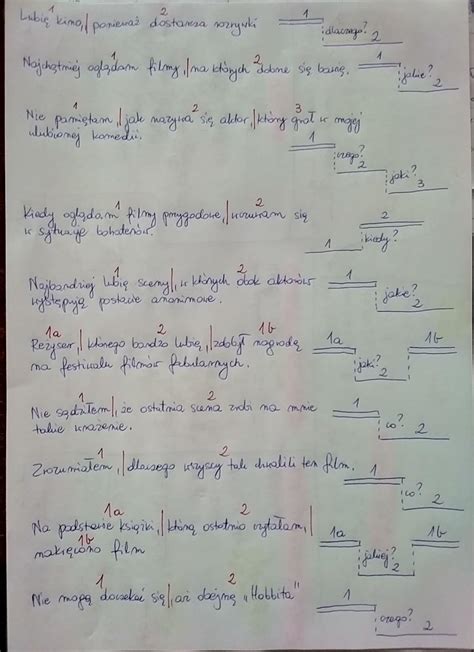 1 2 1
Lubię kino, | ponieważ dostarcza rozrywki dlaczego?
2
1 2 1
Najchętniej oglądam filmy, | na których dobrze się bawię. jakie?
2
1 2 3
Nie pamiętam, | jak nazywa się aktor, | który grał w mojej
ulubionej komedii. 1
czego?
2 jaki?
3
1 2 2
Kiedy oglądam filmy przygodowe, | wczuwam się
w sytuację bohaterów. 1 kiedy?
1 2
Najbardziej lubię sceny, | w których obok aktorów 1
występują postacie anonimowe. jakie?
2
1a 2 1b
Reżyser, | którego bardzo lubię, | zdobył nagrodę 1a 1b
na festiwalu filmów fabularnych. jaki?
2
1 2
Nie sądziłem, | że ostatnia scena zrobi na mnie 1
takie wrażenie. co?
2
1 2
Zrozumiałem, | dlaczego wszyscy tak chwalili ten film. 1
co?
2
1a 2
Na podstawie książki, | którą ostatnio czytałam, | 1a 1b
1b jakiej?
nakręcono film 2
1 2
Nie mogę doczekać się, | aż obejrzę „Hobbita” 1
czego?
2